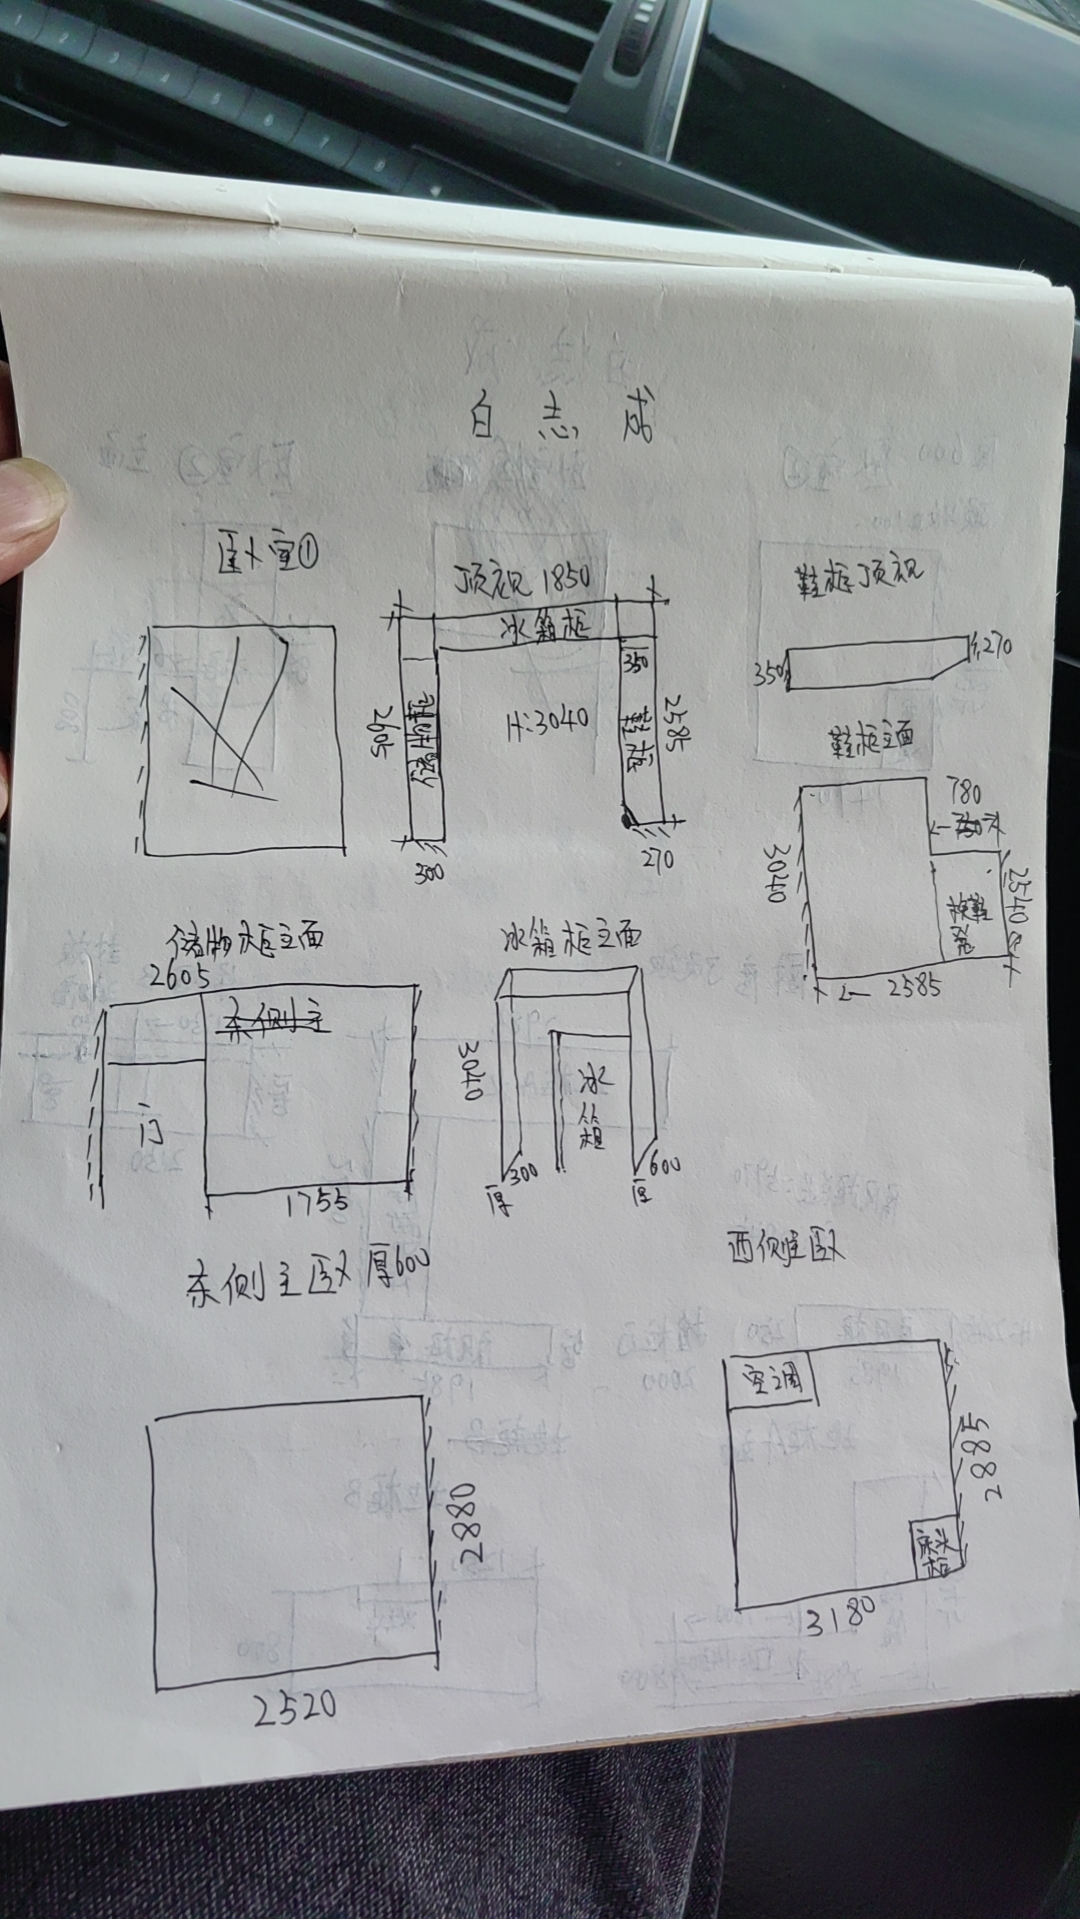 白志成
卧室①
顶视 1850
冰箱柜
350
2605
储物柜
H:3040
鞋柜
2585
300
270
鞋柜顶视
350
270
鞋柜立面
780
3040
2540
换鞋凳
2585
储物柜立面
2605
东侧主
门
1755
冰箱柜立面
3040
冰箱
300
厚
600
厚
东侧主卧 厚600
2880
2520
西侧主卧
空调
2885
床头柜
3180